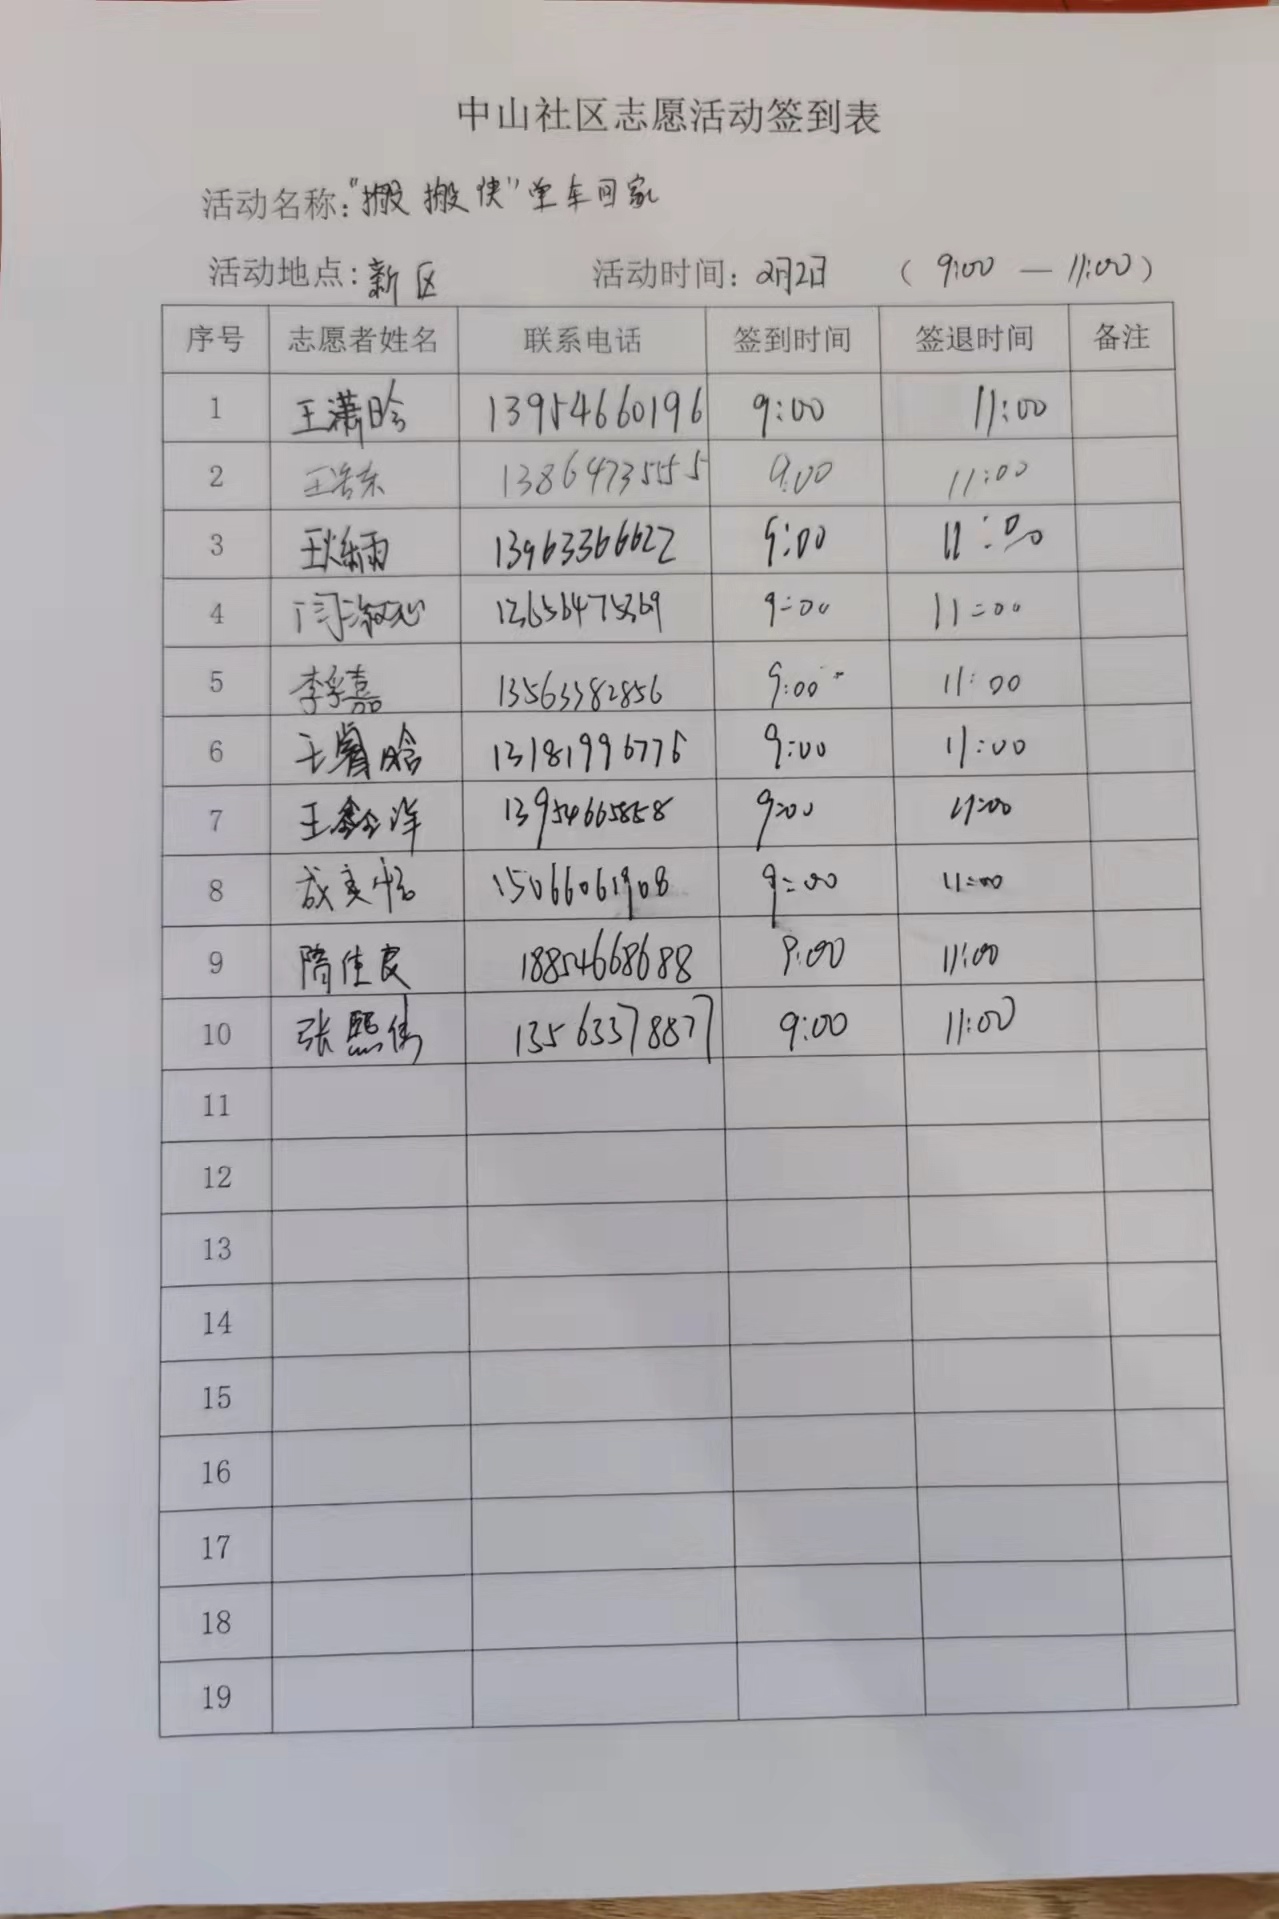 中山社区志愿活动签到表
活动名称:"搬搬侠"单车回家
活动地点:新区 活动时间:2月2日 (9:00—11:00)
序号 志愿者姓名 联系电话 签到时间 签退时间 备注
1 王潇晗 13954660196 9:00 11:00
2 王浩东 13864735555 9:00 11:00
3 13963366622 9:00 11:00
4 闫淑心 13656475369 9:00 11:00
5 李孚嘉 13563382856 9:00 11:00
6 王睿晗 13181996776 9:00 11:00
7 王鑫洋 13954665858 9:00 11:00
8 成奕恬 15066061908 9:00 11:00
9 隋佳良 18854668688 9:00 11:00
10 张熙倩 13563378877 9:00 11:00
11
12
13
14
15
16
17
18
19